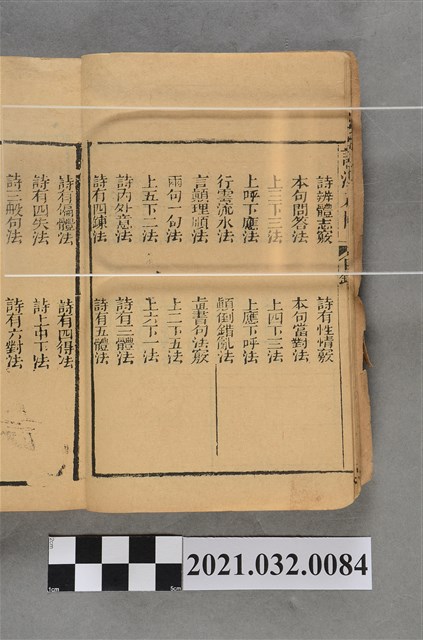 詩辨體志竅　詩有性情竅
本句問答法　本句當對法
上三下三法　上四下三法
上呼下應法　上應下呼法
行雲流水法　顛倒錯亂法
言顛理順法　直書句法竅
兩句一句法　上二下五法
上五下二法　上六下一法
詩內外意法　詩有三體法
詩有四鍊法　詩有五體法
詩有偏體法　詩有四得法
詩有四失法　詩上中下法
詩三般句法　詩有六對法
1cm 5cm
2021.032.0084